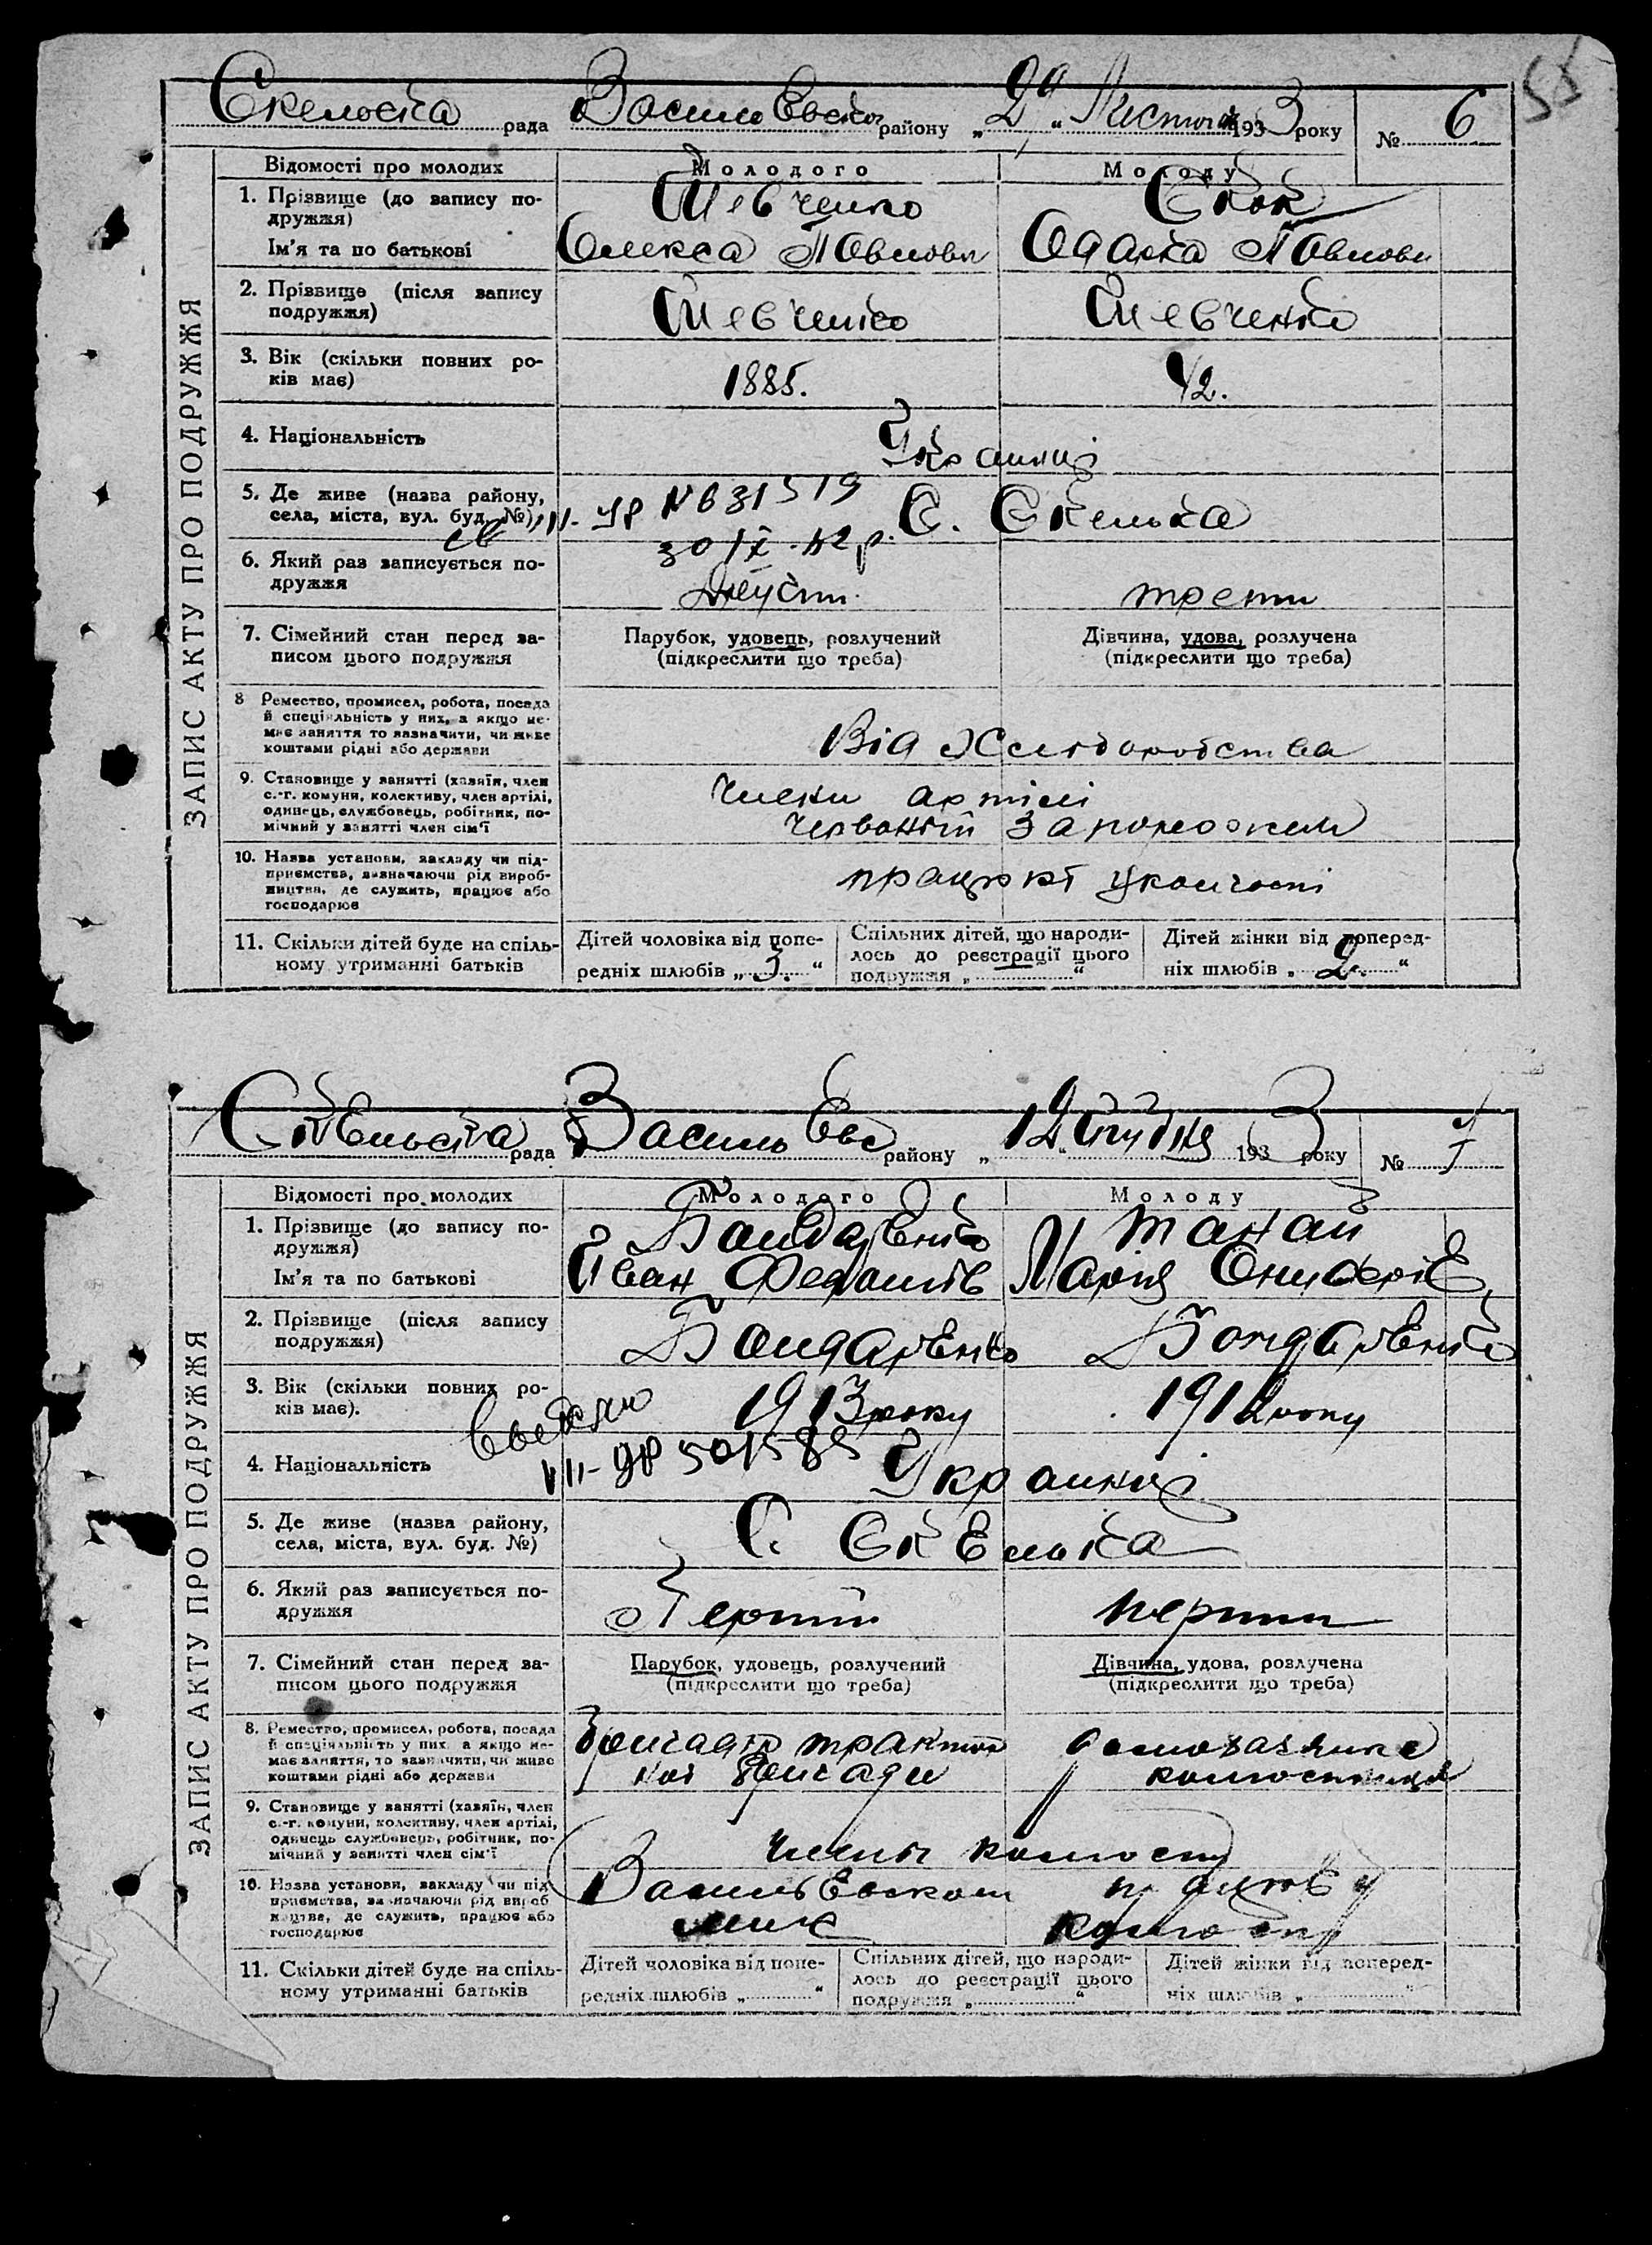 55
Скельска рада Василевськ району „2“ Листоп 1933 року № 6
ЗАПИС АКТУ ПРО ПОДРУЖЖЯ
Відомості про молодих Молодого Молоду
1. Прізвище (до запису по-
дружжя) Шевченко Скок
Ім'я та по батькові Олекса Павлови Одарка Павлови
2. Прізвище (після запису
подружжя) Шевченко Шевченко
3. Вік (скільки повних ро-
ків має) 1885. 42.
4. Національність Украинці
5. Де живе (назва району,
села, міста, вул. буд. №) С. Скелька
св VII-УР № 631519
30 IX-42 р.
6. Який раз записується по-
дружжя трети
7. Сімейний стан перед за-
писом цього подружжя
Парубок, удовець, розлучений
(підкреслити що треба)
Дівчина, удова, розлучена
(підкреслити що треба)
8 Ремество, промисел, робота, посада
й спеціяльність у них, а якщо не-
має заняття то зазначити, чи живе
коштами рідні або держави
Від Хліборобства
9. Становище у занятті (хазяїн, член
с.-г. комуни, колективу, член артілі,
одинець, службовець, робітник, по-
мічний у занятті член сім'ї
Члени артілі
Червоний Запорожець
10. Назва установи, закладу чи під-
приємства, визначаючи рід вироб-
ництва, де служить, працює або
господарює
працюют уколгоспі
11. Скільки дітей буде на спіль-
ному утриманні батьків
Дітей чоловіка від попе-
редніх шлюбів „ 3. “
Спільних дітей, що народи-
лось до реєстрації цього
подружжя „ “
Дітей жінки від поперед-
ніх шлюбів „ 2. “
Скельська рада Васильевс району „12“ Грудня 1933 року №
ЗАПИС АКТУ ПРО ПОДРУЖЖЯ
Відомості про молодих Молодого Молоду
1. Прізвище (до запису по-
дружжя) Бондаренко Танай
Ім'я та по батькові Иван Марія
2. Прізвище (після запису
подружжя) Бондаренко Бондаренко
3. Вік (скільки повних ро-
ків має). 1913 року 1912 року
4. Національність Украинці
VII-УР 501585
5. Де живе (назва району,
села, міста, вул. буд. №) С. Скелька
6. Який раз записується по-
дружжя Перший перши
7. Сімейний стан перед за-
писом цього подружжя
Парубок, удовець, розлучений
(підкреслити що треба)
Дівчина, удова, розлучена
(підкреслити що треба)
8. Ремество, промисел, робота, посада
й спеціяльність у них, а якщо не-
має заняття, то зазначити, чи живе
коштами рідні або держави
Бригадір трактор
ной бригади
9. Становище у занятті (хазяїн, член
с.-г. комуни, колективу, член артілі,
одинець службовець, робітник, по-
мічний у занятті член сім'ї
члены колгоспу
10. Назва установи, закладу чи під-
приємства, визначаючи рід вироб-
ництва, де служить, працює або
господарює
Васильевском
колгоспу
11. Скільки дітей буде на спіль-
ному утриманні батьків
Дітей чоловіка від попе-
редніх шлюбів „ “
Спільних дітей, що народи-
лось до реєстрації цього
подружжя „ “
Дітей жінки від поперед-
ніх шлюбів „ “